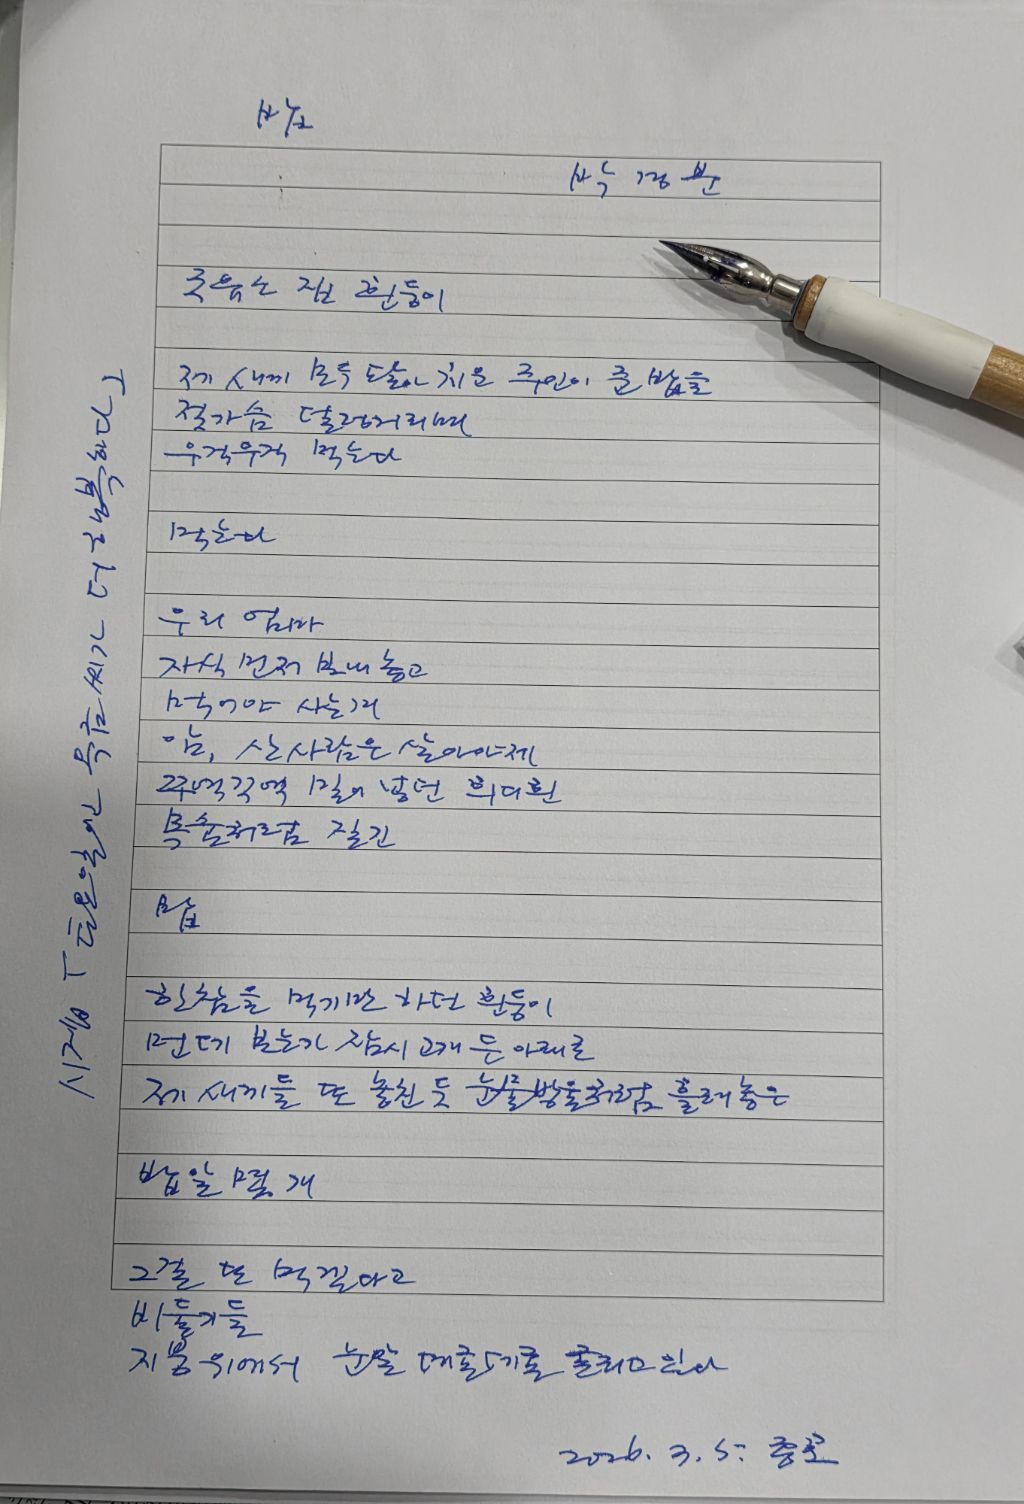 밥
박경분
옷음소 집 흰둥이
제 새끼 모두 팔아 치운 주인이 준 밥을
젖가슴 덜렁거리며
우걱우걱 먹는다
먹는다
우리 엄마
자식 먼저 보내 놓고
먹어야 사는겨
암, 산 사람은 살아야제
꾸역꾸역 밀어 넣던 희디흰
목숨처럼 질긴
밥
한참을 먹기만 하던 흰둥이
먼 데 보는가 잠시 고개 든 아래로
제 새끼들 또 놓친 듯 눈물방울처럼 흘려놓은
밥알 몇 개
그걸 또 먹겠다고
비둘기들
지붕 위에서 눈알 데굴데굴 굴리고 있다
2026. 3. 5. 종로
시집 『토요일에 목금씨가 더 행복하다』